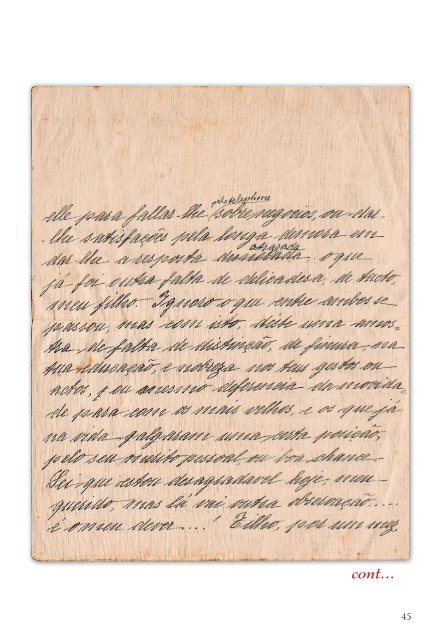 pelo telephone
elle para fallar-lhe sobre negocios, ou dar-
lhe satisfações pela longa demora em
atrazada
dar-lhe a resposta o que
já foi outra falta de delicadesa, de tacto,
meu filho. Ignoro o que entre ambos se
passou, mas com isto, déste uma amos-
tra de falta de distincção, de finura na
tua educação, e nobreza nos teus gestos ou
actos, e ou mesmo deferencia da mocida-
de para com os mais velhos, e os que já
na vida galgaram uma certa posição,
pelo seu merito pessoal, ou boa chance.
Sei que estou desagradavel hoje, meu
querido, mas lá vai outra observação....
é o meu dever....! Filho, por um mez,
cont...
45